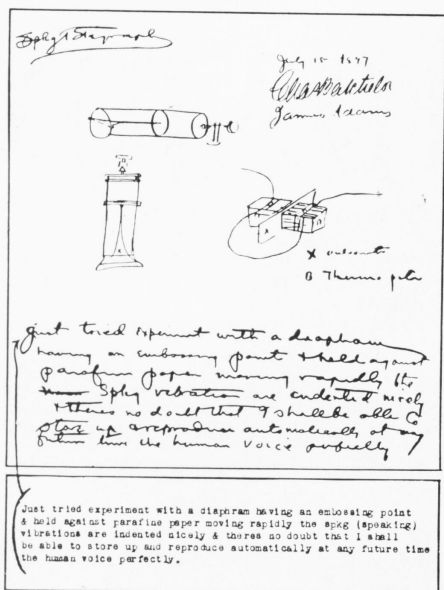 Spkg Telegraph
July 18 1877
Chas Batchelor
James Adams
X vulcanite
B Thermo pile
Just tried experiment with a diaphram
having an embossing point & held against
parafin paper moving rapidly the
Spkg vibrations are indented nicely
& theres no doubt that I shall be able to
store up & reproduce automatically at any
future time the human voice perfectly
Just tried experiment with a diaphram having an embossing point
& held against parafine paper moving rapidly the spkg (speaking)
vibrations are indented nicely & theres no doubt that I shall
be able to store up and reproduce automatically at any future time
the human voice perfectly.